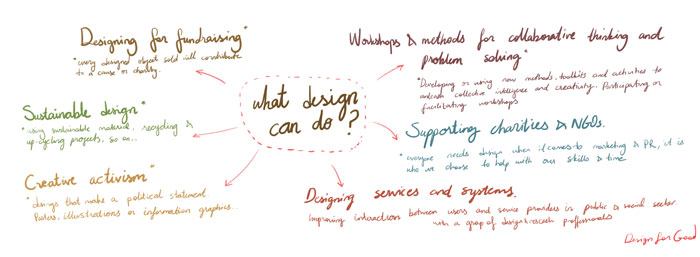 Designing for fundraising"
"every designed object sold will contribute
to a cause or charity.
Workshops & methods for collaborative thinking and
problem solving"
"Developing or using new methods, toolkits and activities to
unleash collective intelligence and creativity.. Participating or
facilitating workshops
what design
can do?
Sustainable design"
"using sustainable material, recycling &
up-cycling projects, so on...
Supporting charities & NGOs.
"everyone needs design when it comes to marketing & PR, it is
who we choose to help with our skills & time
Creative activism"
"designs that make a political statement
Posters, illustrations or information graphics...
Designing services and systems.
Improving interaction between users and service providers in public & social sector
with a group of design & research proffesionals
Design for Good